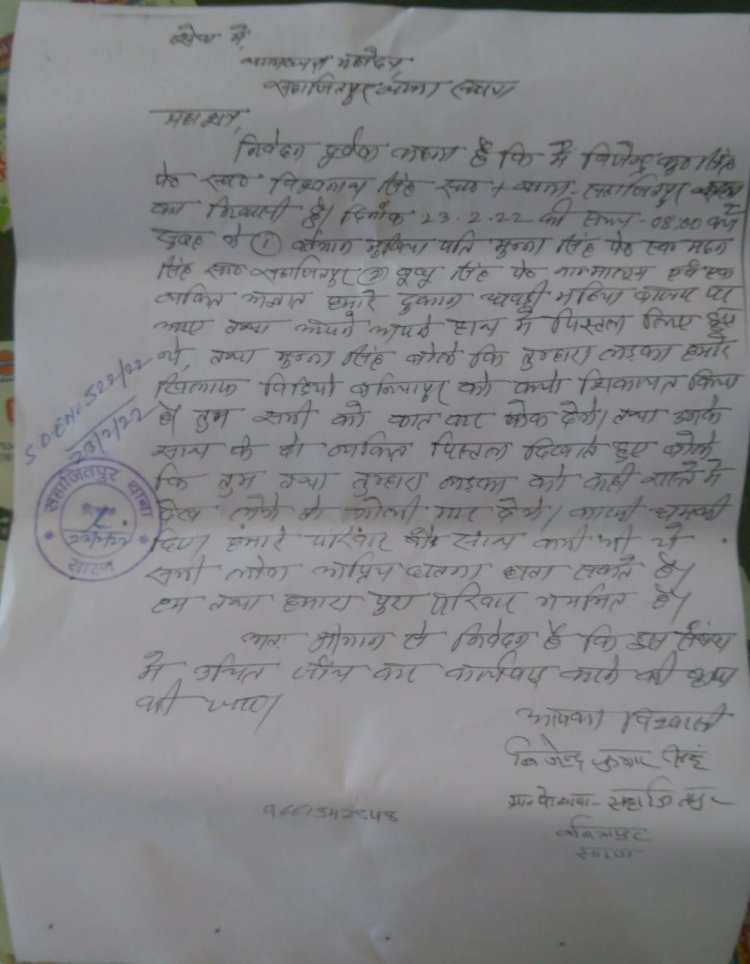 सेवा में,
थानाध्यक्ष महोदय,
सहाजितपुर थाना सारण
महाशय,
निवेदन पूर्वक कहना है कि मैं बिजेन्द्र कुमार सिंह
पे० स्व० विश्वनाथ सिंह सा० + थाना - सहाजितपुर
का निवासी हूँ। दिनांक 23.2.22 को समय - 08:00 बजे
सुबह के ① वर्तमान मुखिया पति मुन्ना सिंह पे० स्व० मदन
सिंह सा० सहाजितपुर ② सिंह पे० एवं एक
व्यक्ति अज्ञात हमारे दुकान पर
आए तथा अपने अपने हाथ में पिस्टल लिए हुए
थे, तथा मुन्ना सिंह बोले कि तुम्हारा लड़का हमारे
खिलाफ विडियो बनियापुर को क्यों शिकायत किया
है तुम सभी को काट कर फेक देंगे। तथा उनके
साथ के दो व्यक्ति पिस्टल दिखाते हुए बोले
कि तुम तथा तुम्हारा लड़का को कही रास्ते में
देख लेंगे तो गोली मार देंगे। धमकी
दिए। हमारे परिवार के साथ कभी भी ये
सभी लोग अप्रिय घटना घटा सकते है।
हम तथा हमारा पुरा परिवार भयभित है।
अतः श्रीमान से निवेदन है कि इस संबंध
में उचित जाँच कर कार्यवाई करने की कृपा
की जाए।
आपका विश्वासी
बिजेन्द्र कुमार सिंह
सहाजितपुर
बनियापुर
सारण
9661342548
S.D.E No. 522/22
23/2/22
सहाजितपुर थाना
दिनांक
23/2/22
सारण